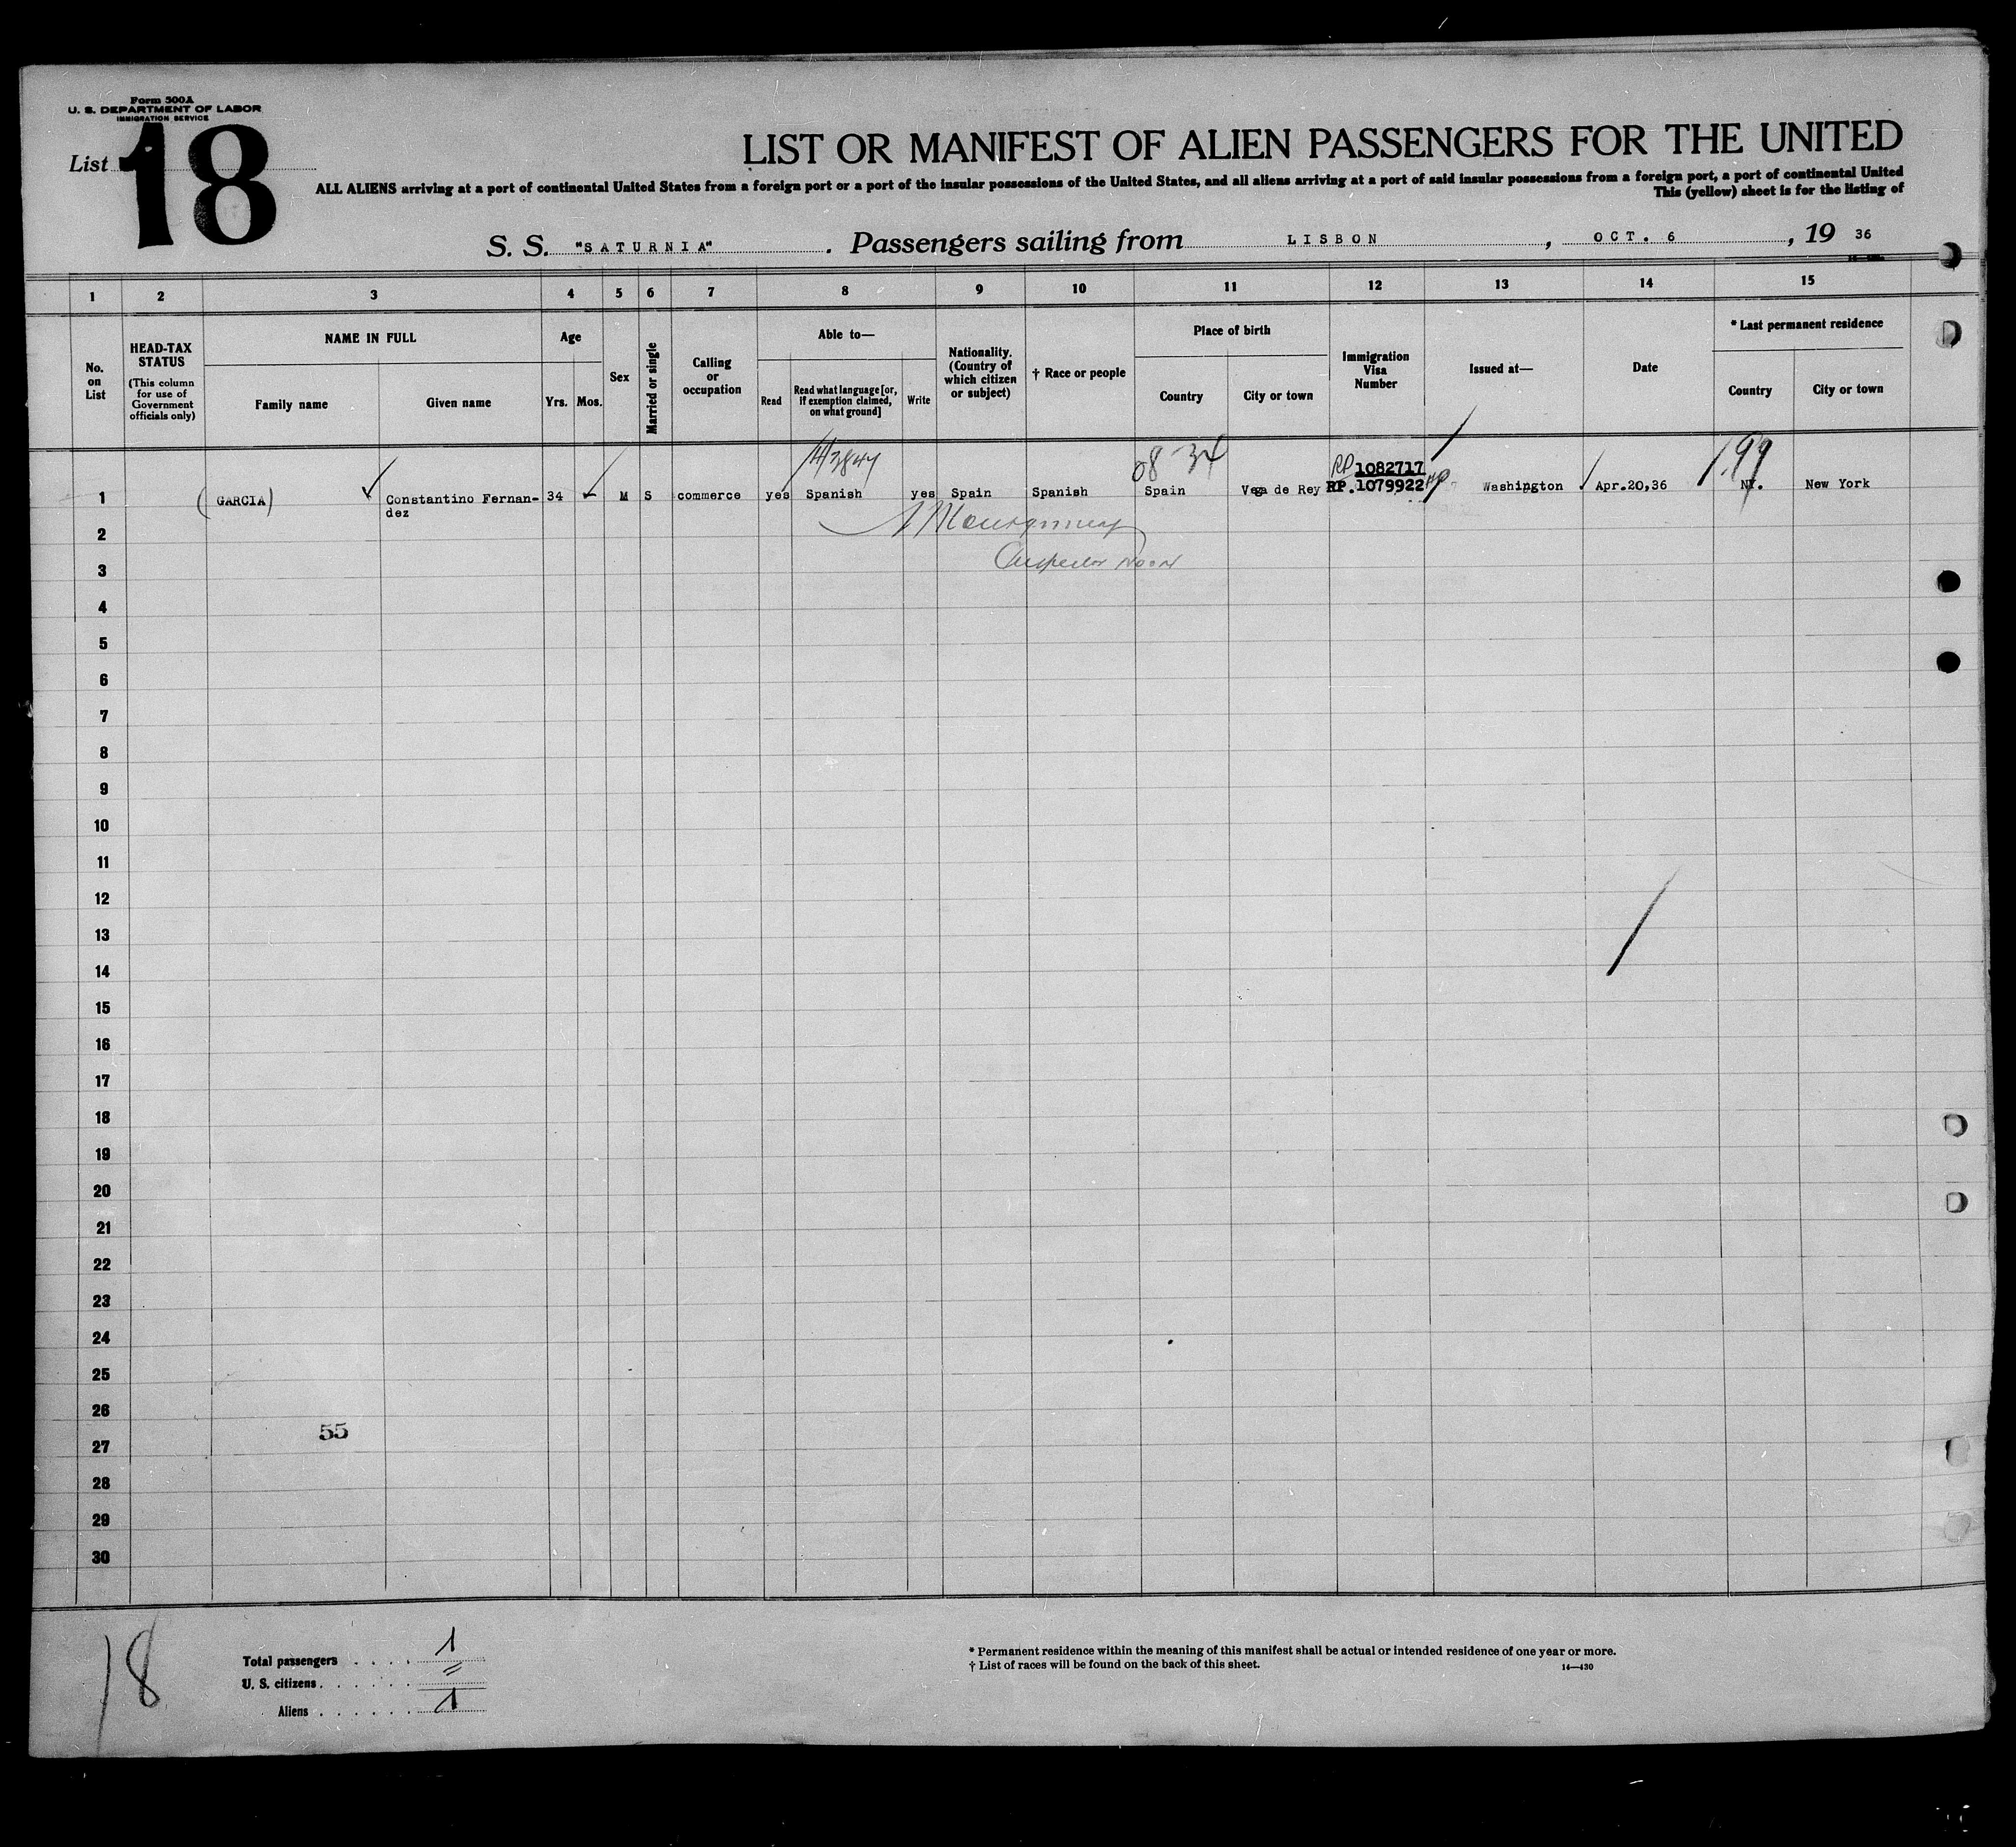 Form 500A
U. S. DEPARTMENT OF LABOR
IMMIGRATION SERVICE
List 18
LIST OR MANIFEST OF ALIEN PASSENGERS FOR THE UNITED
ALL ALIENS arriving at a port of continental United States from a foreign port or a port of the insular possessions of the United States, and all aliens arriving at a port of said insular possessions from a foreign port, a port of continental United
This (yellow) sheet is for the listing of
S. S. "SATURNIA". Passengers sailing from LISBON, OCT. 6, 19 36
1 2 3 4 5 6 7 8 9 10 11 12 13 14 15
No. on List
HEAD-TAX STATUS
(This column for use of Government officials only)
NAME IN FULL
Family name
Given name
Age
Yrs. Mos.
Sex
Married or single
Calling or occupation
Able to—
Read
Read what language [or, if exemption claimed, on what ground]
Write
Nationality. (Country of which citizen or subject)
† Race or people
Place of birth
Country
City or town
Immigration Visa Number
Issued at—
Date
* Last permanent residence
Country
City or town
08 34
199
RP 1082717
1 (GARCIA) Constantino Fernan- 34 M S commerce yes Spanish yes Spain Spanish Spain Vega de Rey RP.1079922 Washington Apr.20,36 NY. New York
dez
2
Montgomery
3
Inspector
4
5
6
7
8
9
10
11
12
13
14
15
16
17
18
19
20
21
22
23
24
25
26
55
27
28
29
30
18
Total passengers . . . . 1
U. S. citizens . . . . . .
Aliens . . . . . . 1
* Permanent residence within the meaning of this manifest shall be actual or intended residence of one year or more.
† List of races will be found on the back of this sheet.
14—430